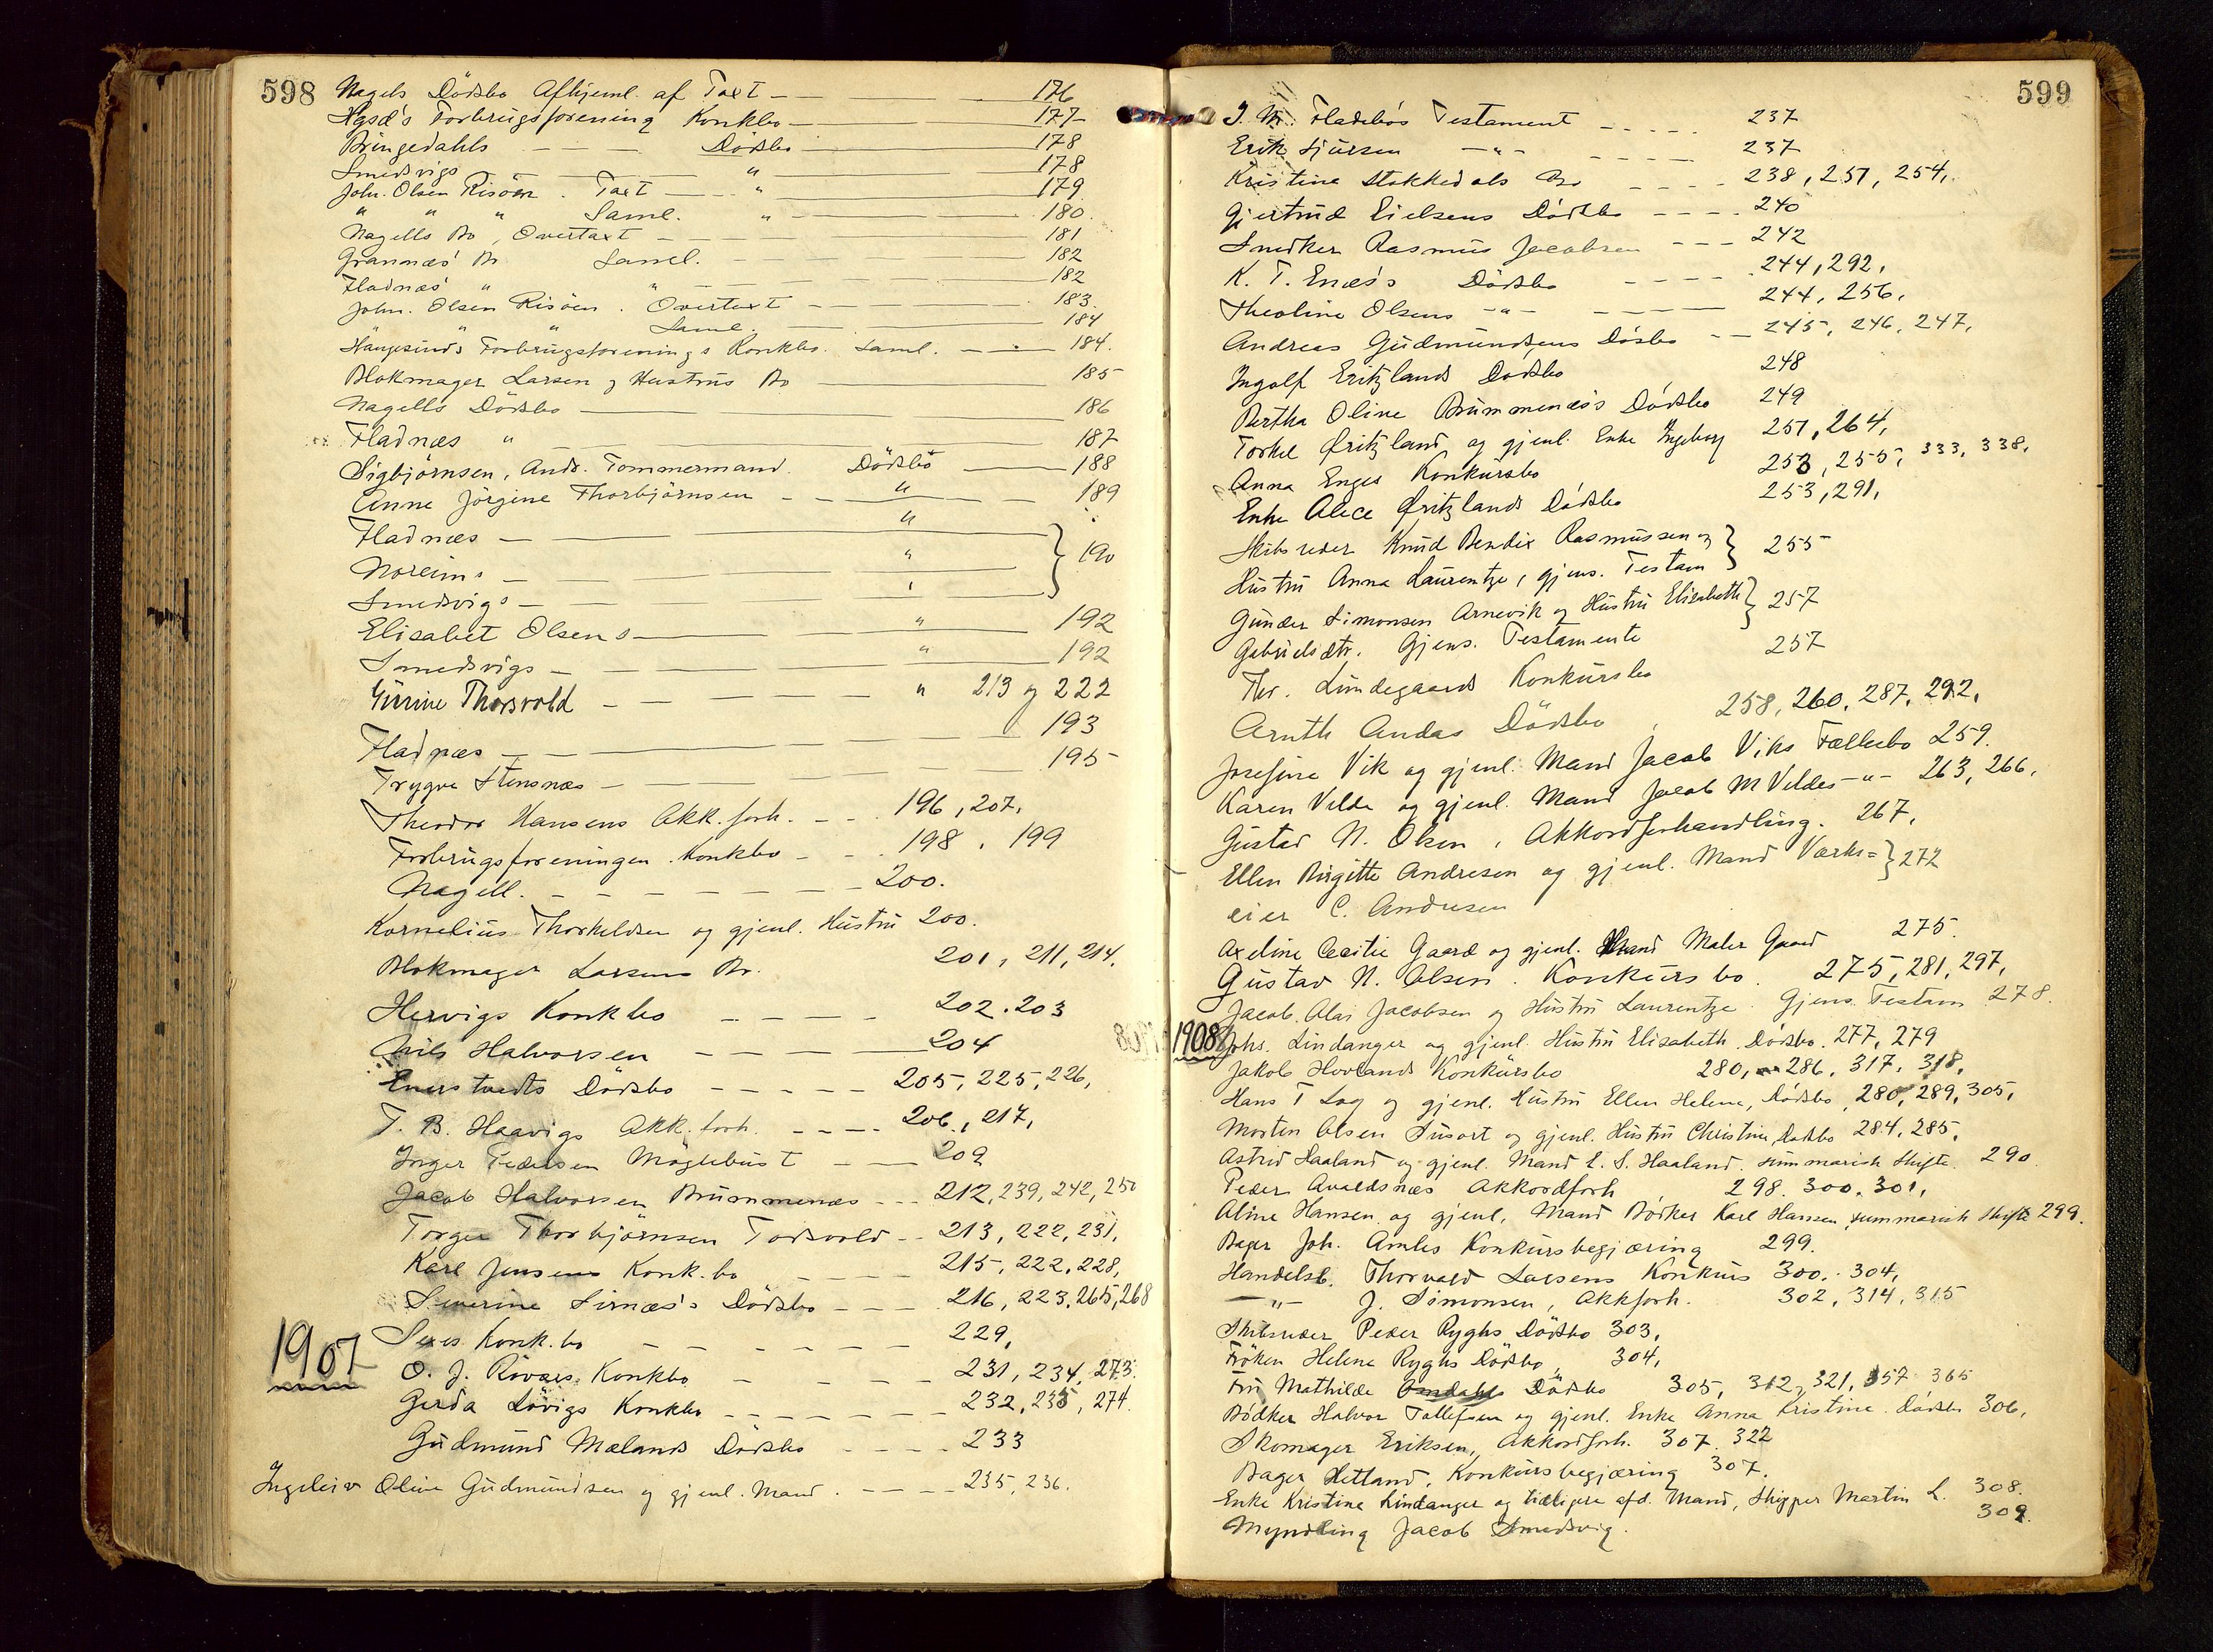 598
Nagels Dödsbo Afhjeml. af Taxt — 176
Forbrugsforening Konkbo — 177
Bringedahls — — — Dödsbo — 178
Smedsvigs — — " — 178
John. Olsen Risöen. Taxt — " — 179
" " " Saml. " — 180.
Nagells Bo, Overtaxt — 181
Grannæs' Bo Saml. — 182
Fladnæs' " " — 182
John. Olsen Risöen. Overtaxt — 183.
" " " Saml. — 184
Haugesunds Forbrugsforenings Konkbo. Saml. — 184.
Blokmager Larsen og Hustrus Bo — 185
Nagells Dödsbo — 186
Fladnæs " — 187
Sigbjörnsen, Andr. Tommermand. Dödsbo — 188
Anne Jörgine Thorbjörnsen — " — 189
Fladnæs — " —
Noreims — " — } 190
Smedsvigs — " —
Elisabet Olsens — " — 192
Smedsvigs — " — 192
Gurine Thorsvold — " 213 og 222
Fladnæs — 193
Trygve Stensnæs — 195
Theodor Hansens Akk. forh. — 196, 207,
Forbrugsforeningen. Konkbo — 198. 199
Nagell. — 200.
Kornelius Thorkeldsen og gjenl. Hustru 200.
Blokmager Larsens Bo. 201, 211, 214.
Hervigs Konkbo — 202. 203
Nils Halvorsen — 204
Enerstvedts Dödsbo — 205, 225, 226,
T. B. Haavigs Akk. forh. — 206, 217,
Inger Pedersen Möglebust — 209
Jacob Halvorsen Brummenæs — 212, 239, 242, 250
Torger Thorbjörnsen Todsvold — 213, 222, 231,
Karl Jensens Konk. bo — 215, 222, 228,
Severine Sirnæs's Dödsbo — 216, 223, 265, 268
1907
Konk. bo — 229,
O. J. Röværs Konkbo — 231, 234, 273.
Gerda Lövigs Konkbo — 232, 235, 274.
Gudmund Mælands Dödsbo — 233
Ingeleiv Oline Gudmundsen og gjenl. Mand. — 235, 236.
599
J. M. Fladebös Testament — 237
Erik Sjursen — " — 237
Kristine Stokkedals Bo — 238, 251, 254,
Gjertrud Eielsens Dödsbo — 240
Snedker Rasmus Jacobsen — 242
K. T. Enæs's Dödsbo — 244, 292,
Theoline Olsens — " — 244, 256,
Andreas Gudmundsens Dödsbo — 245, 246, 247,
Ingolf Eritzlands Dödsbo 248
Bertha Oline Brummenæs's Dödsbo 249
Torkel Øritzland og gjenl. Enke Ingeborg 251, 264,
Anna Enges Konkursbo 253, 255, 333, 338,
Enke Alice Øritzlands Dödsbo 253, 291,
Skibsreder Knud Bendix Rasmussen og } 255
Hustru Anna Laurentze, gjens. Testam
Gunder Simonsen Arnevik og Hustru Elisabeth } 257
Gabrielsdtr. Gjens. Testamente
Thr. Lindegaards Konkursbo 257
Arnth Andas Dödsbo 258, 260, 287, 292,
Josefine Vik og gjenl. Mand Jacob Viks Fællesbo 259.
Karen Velde og gjenl. Mand Jacob M Veldes — " — 263, 266,
Gustav N. Olsen, Akkordforhandling. 267,
Ellen Birgitte Andresen og gjenl. Mand Værks= } 272
eier C. Andresen
Axeline Cecilie Gaard og gjenl. Mand Maler Gaard 275.
Gustav N. Olsen. Konkursbo. 275, 281, 297,
Jacob Alas Jacobsen og Hustru Laurentze. Gjens. Testam 278.
1908
Johs. Lindanger og gjenl. Hustru Elisabeth. Dödsbo. 277, 279
Jakob Hovlands Konkursbo 280, 286, 317, 318,
Hans T Log og gjenl. Hustru Ellen Helene, Dödsbo, 280, 289, 305,
Morten Olsen Susort og gjenl. Hustru Christine, Dödsbo 284, 285,
Astrid Haaland og gjenl. Mand L. S. Haaland. summarisk Skifte. 290
Peder Avaldsnæs Akkordforh 298. 300. 301,
Aline Hansen og gjenl. Mand Bödker Karl Hansen, summarisk Skifte 299.
Bager Joh. Amlis Konkursbegjæring 299.
Handelsb. Thorvald Larsens Konkurs 300. 304,
— " — J. Simonsen, Akkforh. 302, 314, 315
Skibsreder Peder Ryghs Dödsbo 303,
Fröken Helene Ryghs Dödsbo, 304,
Fru Mathilde Omdahls Dödsbo 305, 312, 321, 357 365
Bödker Halvor Tollefsen og gjenl. Enke Anna Kristine. Dödsbo 306,
Skomager Eriksen, Akkordforh. 307. 322
Bager Hetland, Konkursbegjæring 307.
Enke Kristine Lindanger og tidligere afd. Mand, Skipper Martin L. 308.
Myndling Jacob Smedsvig. 309.